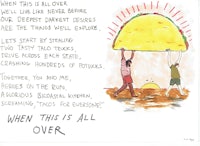 WHEN THIS IS ALL OVER
WE'LL LIVE LIKE NEVER BEFORE
OUR DEEPEST DARKEST DESIRES
ARE THE THINGS WE'LL EXPLORE.
LET'S START BY STEALING
TWO TASTY TACO TRUCKS,
DRIVE ACROSS EACH STATE,
CRASHING HUNDREDS OF POTLUCKS.
TOGETHER, YOU AND ME,
HEROES ON THE RUN,
A GLORIOUS BICOASTAL KINGDOM,
SCREAMING, "TACOS FOR EVERYONE!"
WHEN THIS IS ALL
OVER